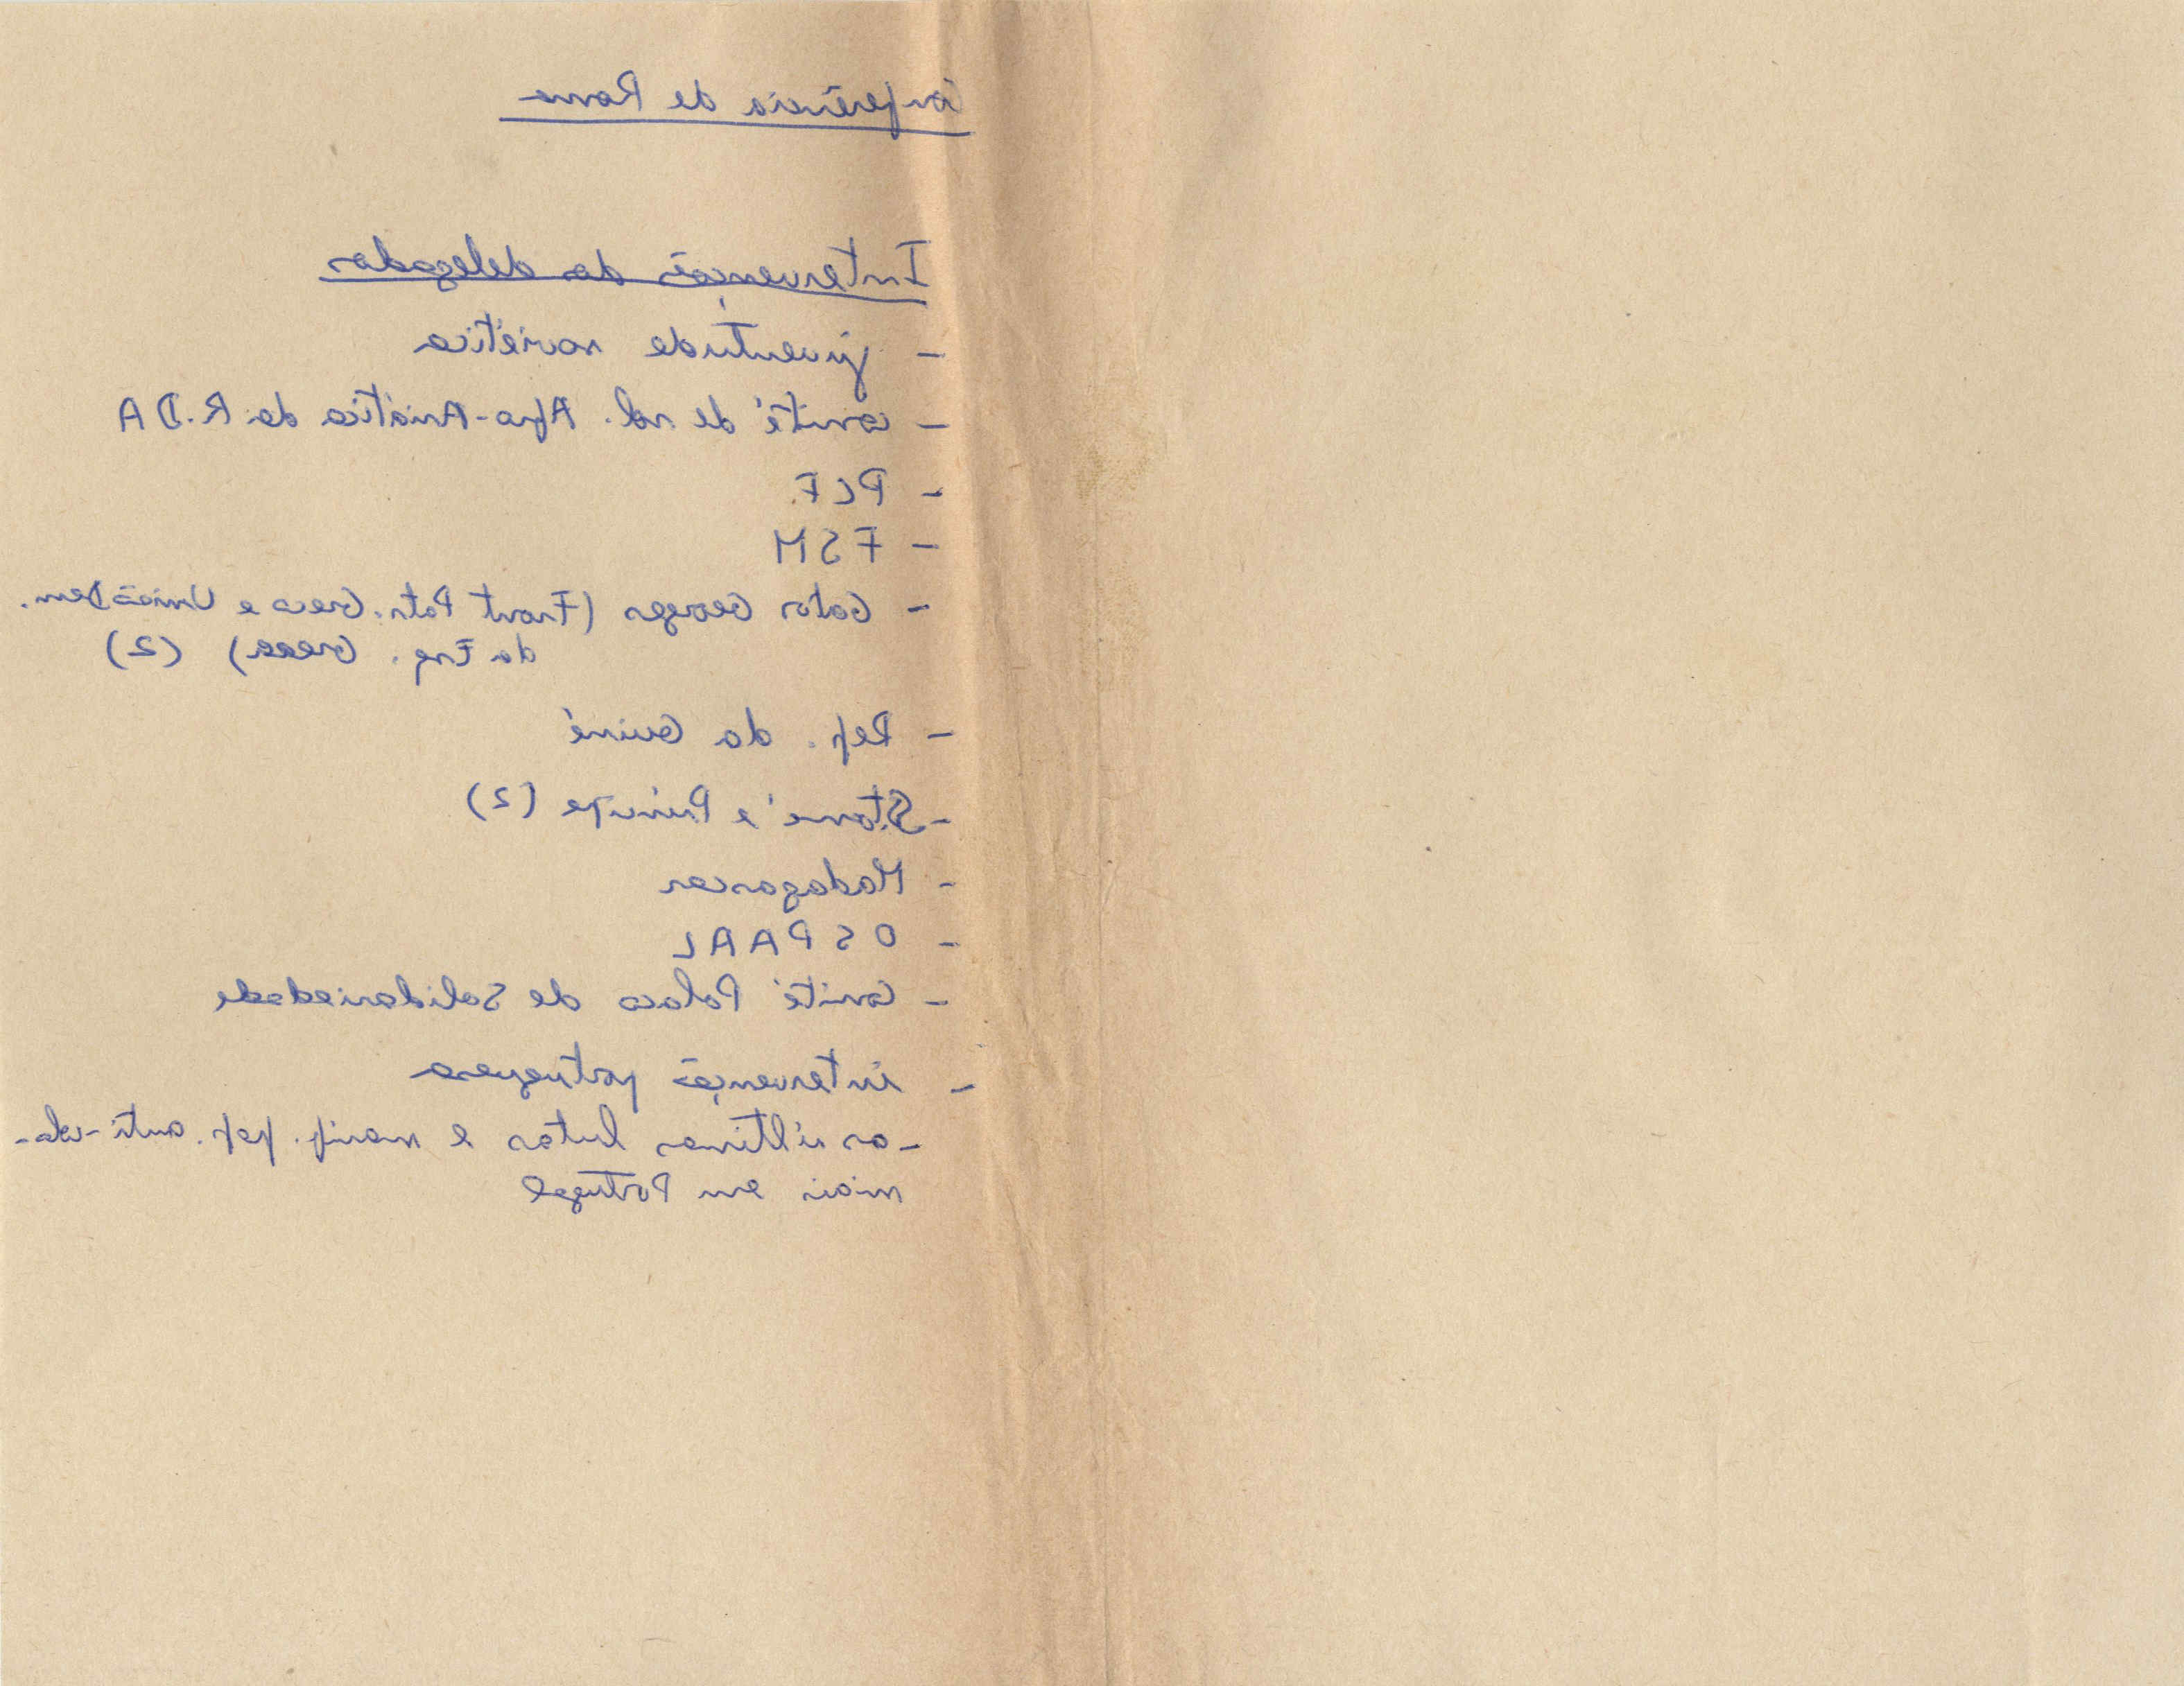 Conferência de Roma
Intervenção da delegados
- juventude soviética
- comité de sol. Afro-Asiática da R.D A
- PCF
- FSM
- Georges (Front Patr. Greco e União Dem.
da Grega) (2)
- Rep. da Guiné
- S. Tomé e Príncipe (2)
- Madagascar
- OSPAAL
- Comité Polaco de Solidariedade
- intervenção portuguesa
- as últimas lutas e manif. pop. anti-colo-
niais em Portugal